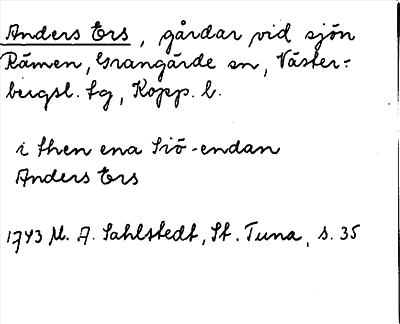 Anders Ers, gårdar vid sjön
Rämen, Grangärde sn, Väster-
bergsl. tg, Kopp. l.
i then ena Siö-endan
Anders Ers
1743 M. A. Sahlstedt, St. Tuna, s. 35